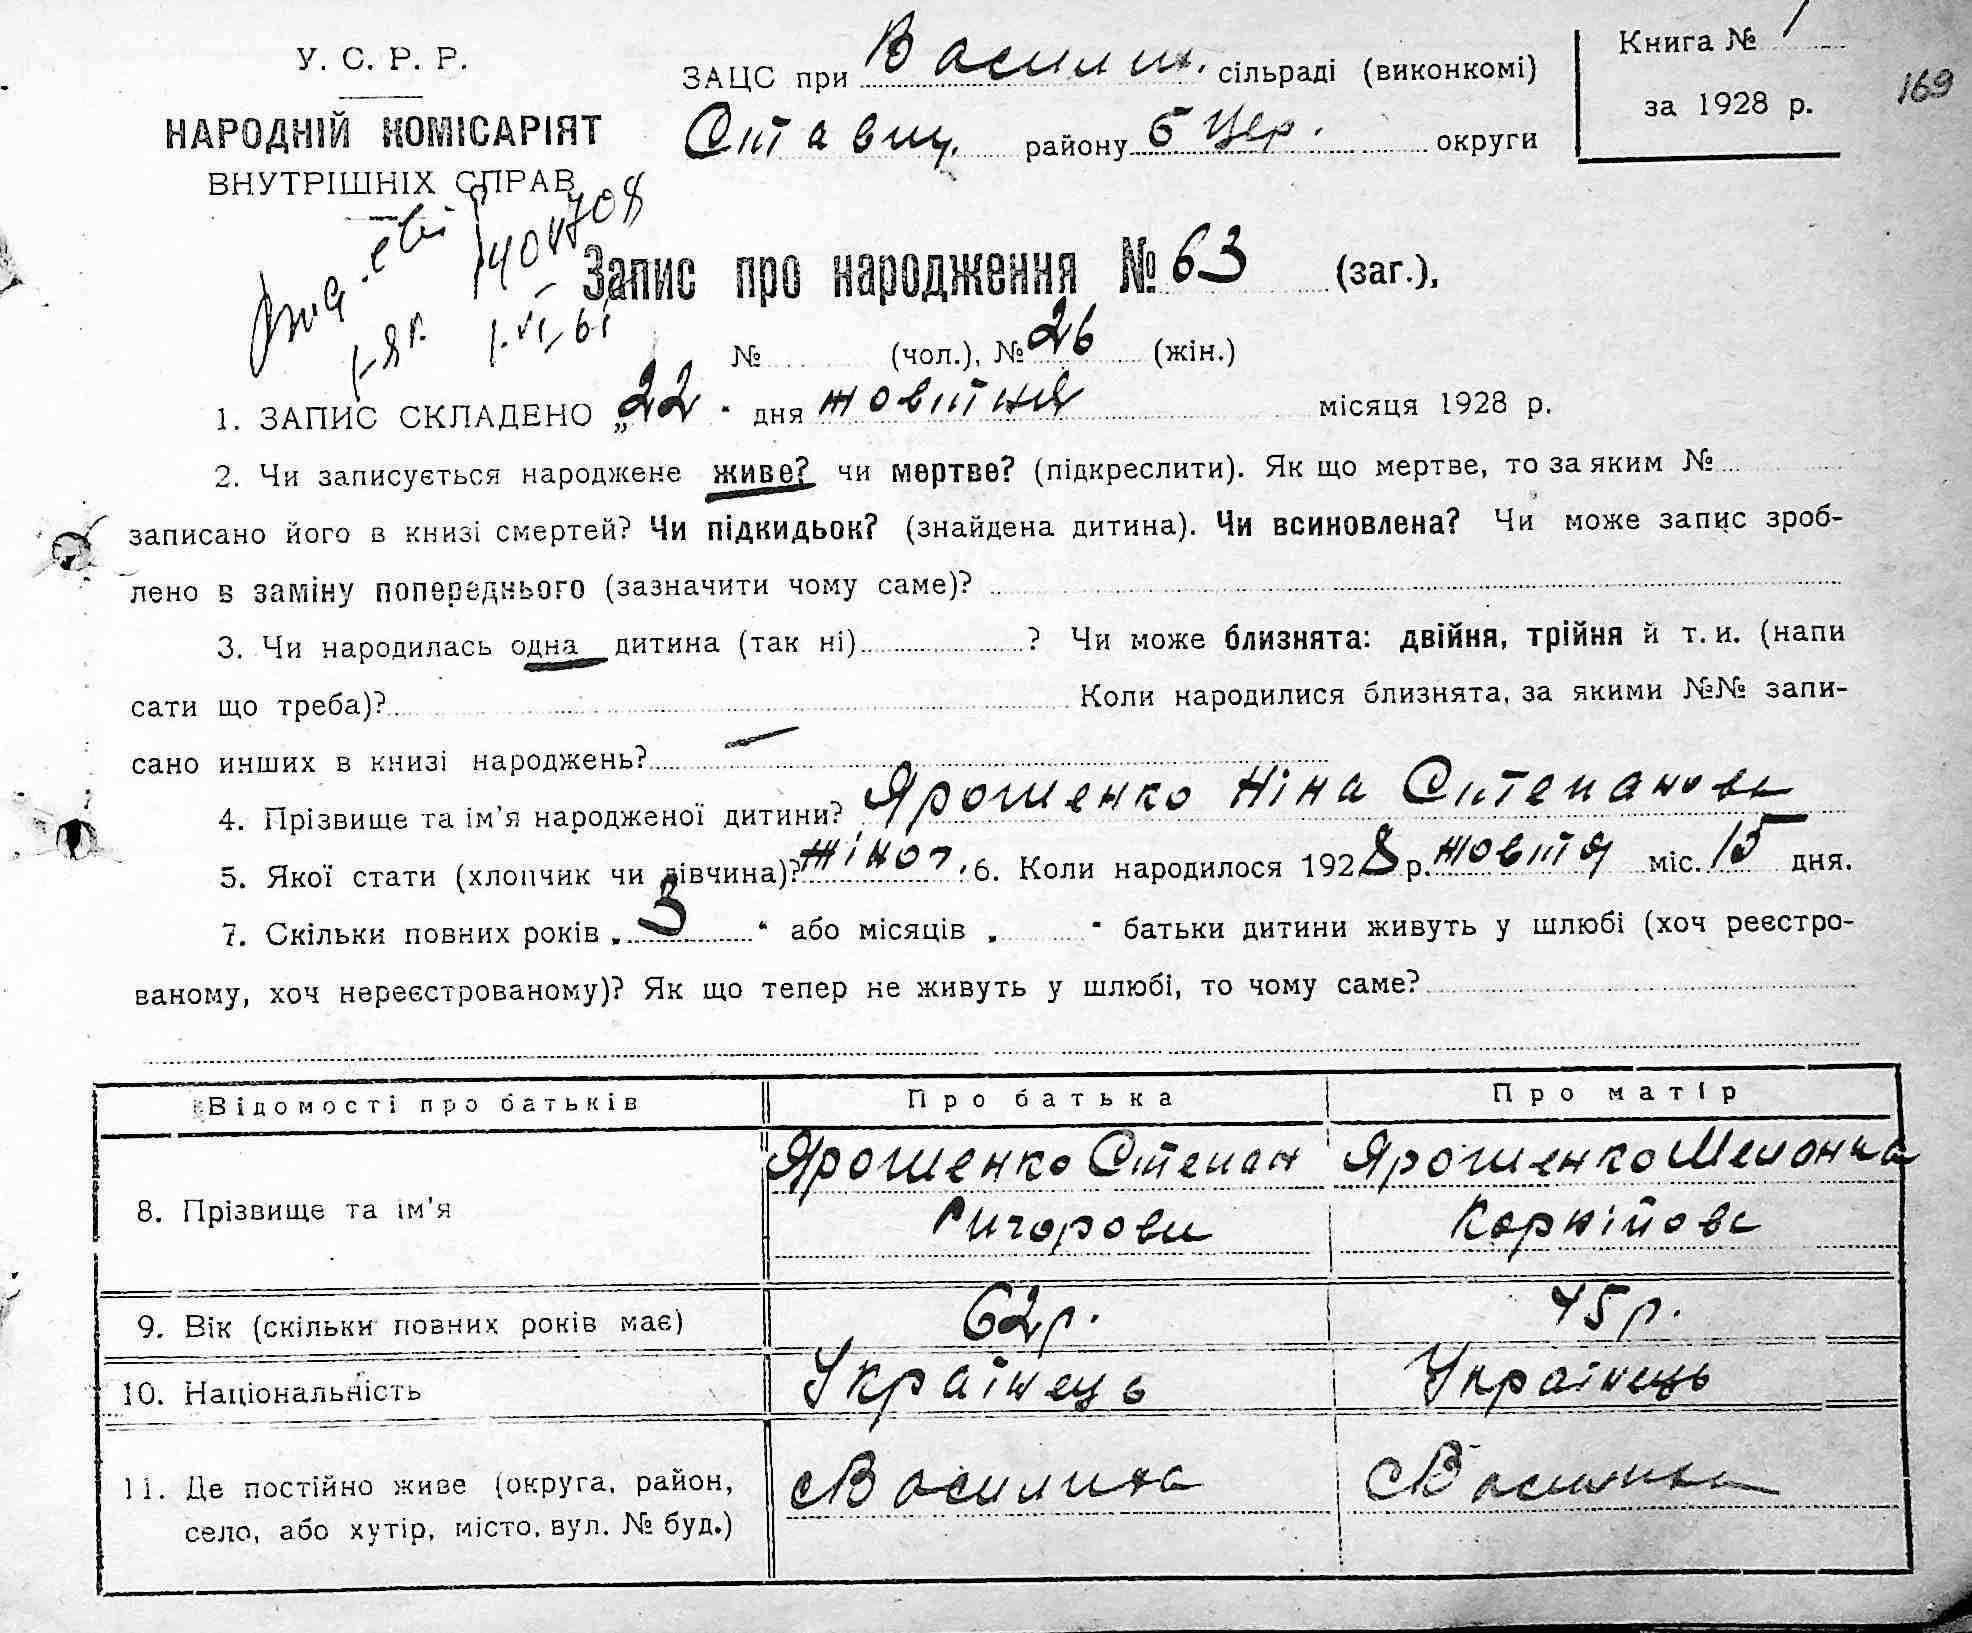 У. С. Р. Р.
НАРОДНІЙ КОМІСАРІЯТ
ВНУТРІШНІХ СПРАВ
ЗАЦС при Васили. сільраді (виконкомі)
Ставищ. району Б Цер. округи
Книга № 1
за 1928 р.
169
404708
1.VI.61
Запис про народження № 63 (заг.),
№ (чол.), № 26 (жін.)
1. ЗАПИС СКЛАДЕНО „22“ дня жовтня місяця 1928 р.
2. Чи записується народжене живе? чи мертве? (підкреслити). Як що мертве, то за яким №
записано його в книзі смертей? Чи підкидьок? (знайдена дитина). Чи всиновлена? Чи може запис зроб-
лено в заміну попереднього (зазначити чому саме)?
3. Чи народилась одна дитина (так ні)? Чи може близнята: двійня, трійня й т. и. (напи
сати що треба)? Коли народилися близнята, за якими №№ запи-
сано инших в книзі народжень? —
4. Прізвище та ім’я народженої дитини? Ярошенко Ніна Степанов
5. Якої стати (хлопчик чи дівчина)? жіноч. 6. Коли народилося 1928 р. жовтя міс. 15 дня.
7. Скільки повних років „3“ або місяців „ “ батьки дитини живуть у шлюбі (хоч реєстро-
ваному, хоч нереєстрованому)? Як що тепер не живуть у шлюбі, то чому саме?
Відомості про батьків Про батька Про матір
8. Прізвище та ім’я
Ярошенко Степан
Григорови
Ярошенко
Корнійов
9. Вік (скільки повних років має) 62 р. 45 р.
10. Національність Українець Українець
11. Де постійно живе (округа, район,
село, або хутір, місто, вул. № буд.)
Василиха Василиха